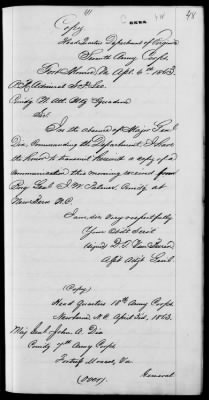 Copy
48
Head Quarters Department of Virginia
Seventh Army Corps.
Fort Monroe, Va. Apl. 6th 1863.
A. R. Admiral S. P. Lee.
Comdg N. Att. Blkg Squadron
Sir.
In the absence of Major Genl
Dix, Commanding the Department, I have
the honor to transmit herewith a copy of a
communication this morning received from
Brig Genl I. N. Palmer, Comdg at
New Bern N.C.
I am sir Very respectfully
Your Obdt Servt
signed D. T. Van Buren
Asst Adjt Genl.
(Copy)
Head Quarters 18th Army Corps
Newbern, N.C. April 3rd, 1863.
Maj Genl John A. Dix
Comdg 7th Army Corps
Fortress Monroe, Va
(over)
General